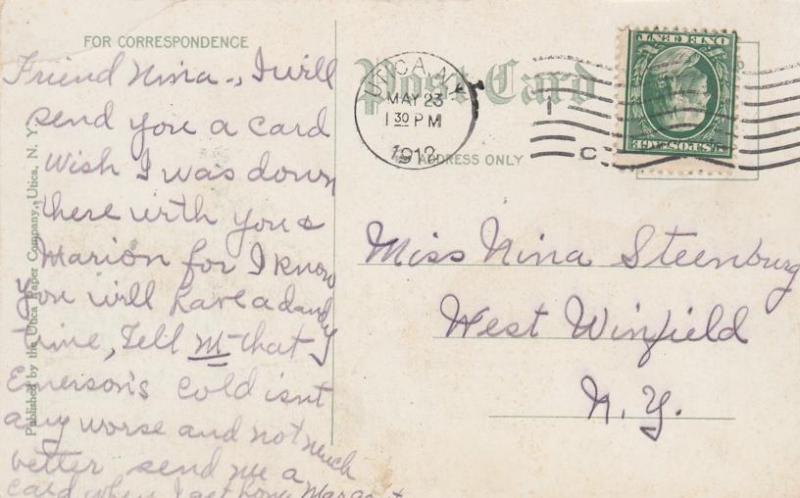 FOR CORRESPONDENCE
Friend Nina., I will
send you a card
Wish I was down
there with you &
Marion for I know
you will have a dandy
time, Tell M that
Emerson's cold isnt
any worse and not much
better send me a
card when I get home
Published by the Utica Paper Company, Utica, N. Y.
Post Card
ADDRESS ONLY
UTICA, N.Y.
MAY 23
1 30 PM
1912
1
C
ONE CENT
U.S. POSTAGE
Miss Nina Steenburg
West Winfield
N. Y.